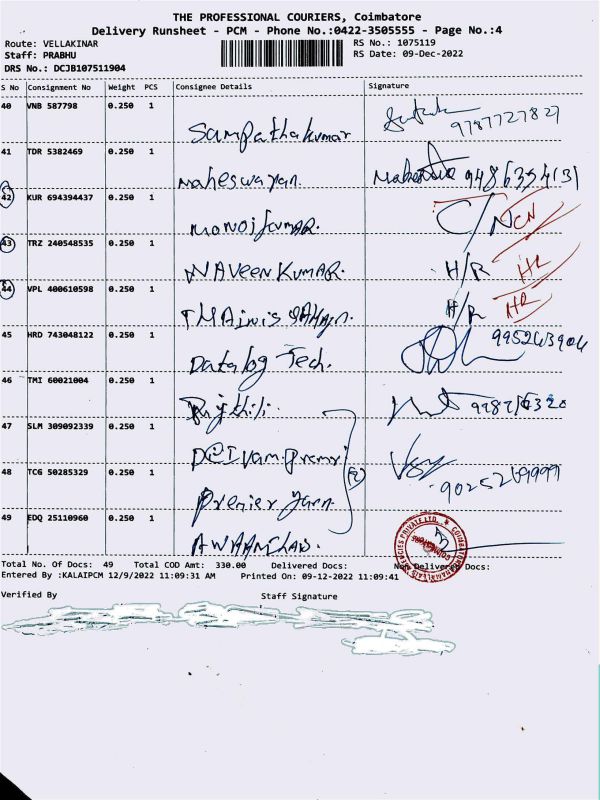 THE PROFESSIONAL COURIERS, Coimbatore
Delivery Runsheet - PCM - Phone No.:0422-3505555 - Page No.:4
Route: VELLAKINAR
RS No.: 1075119
Staff: PRABHU
RS Date: 09-Dec-2022
DRS No.: DCJB107511904
S No Consignment No Weight PCS Consignee Details Signature
40 VNB 587798 0.250 1
Sampathakumar 9787727827
41 TDR 5382469 0.250 1
Maheswaran.
42 KUR 694394437 0.250 1
Manojkumar. C/N CN
43 TRZ 240548535 0.250 1
NAVEEN KUMAR. H/R HR
44 VPL 400610598 0.250 1
H/R HR
45 HRD 743048122 0.250 1
Datalog Tech.
46 TMI 60021004 0.250 1
47 SLM 309092339 0.250 1
48 TCG 50285329 0.250 1
Premier yarn. 9025269999
49 EDQ 25110960 0.250 1
Total No. Of Docs: 49 Total COD Amt: 330.00 Delivered Docs: Non Delivered Docs:
Entered By :KALAIPCM 12/9/2022 11:09:31 AM Printed On: 09-12-2022 11:09:41
Verified By Staff Signature